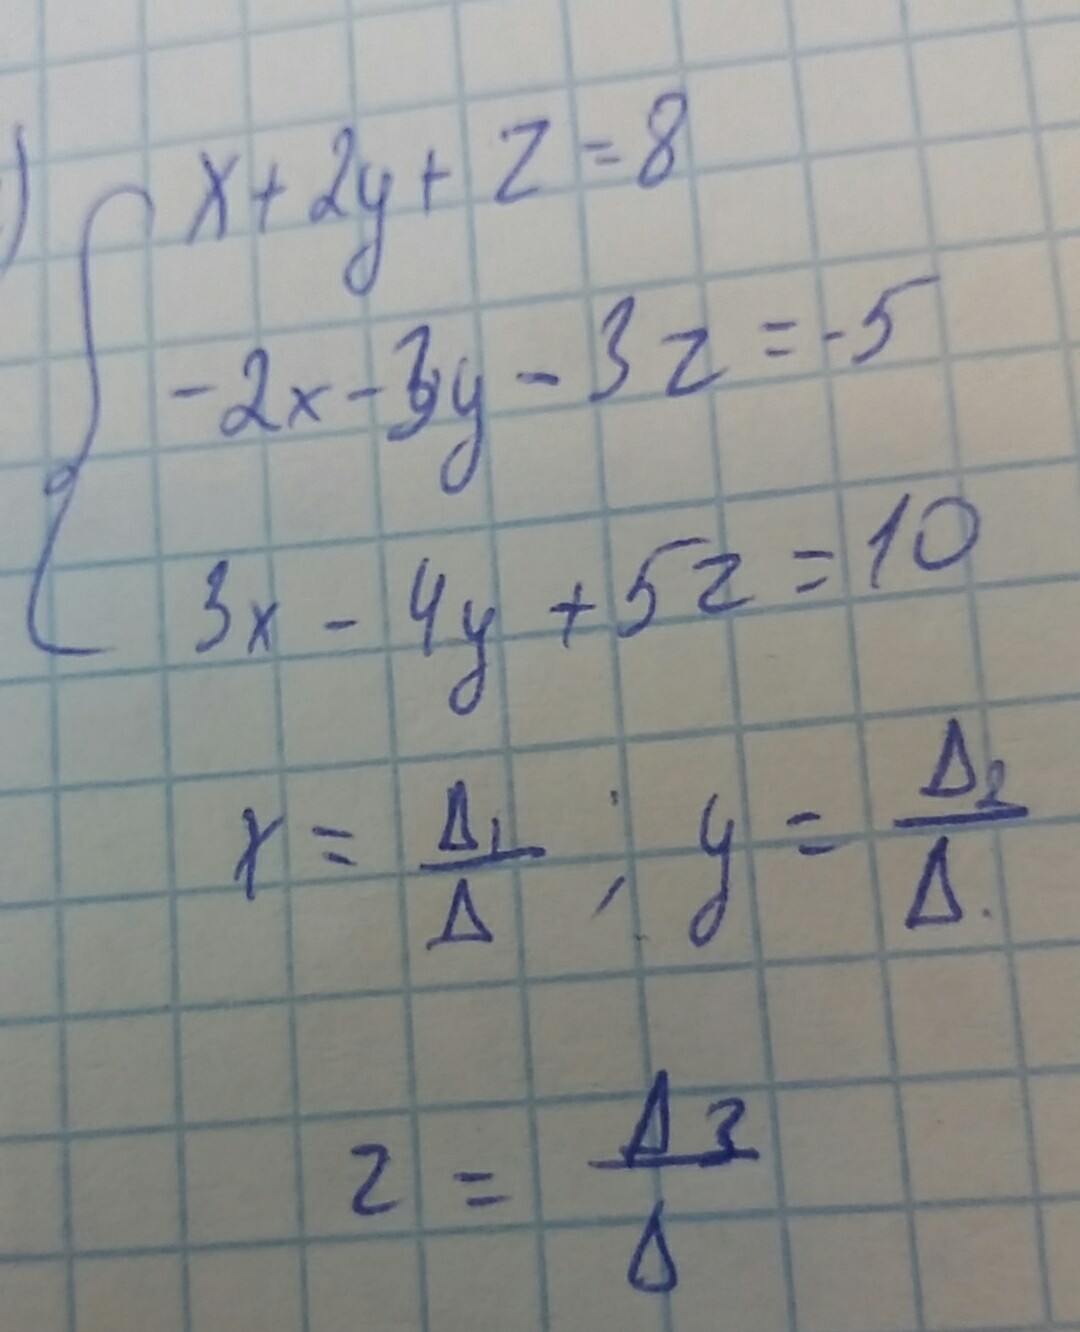 ) x + 2y + z = 8
-2x - 3y - 3z = -5
3x - 4y + 5z = 10
x = Δ1/Δ ; y = Δ2/Δ.
z = Δ3/Δ